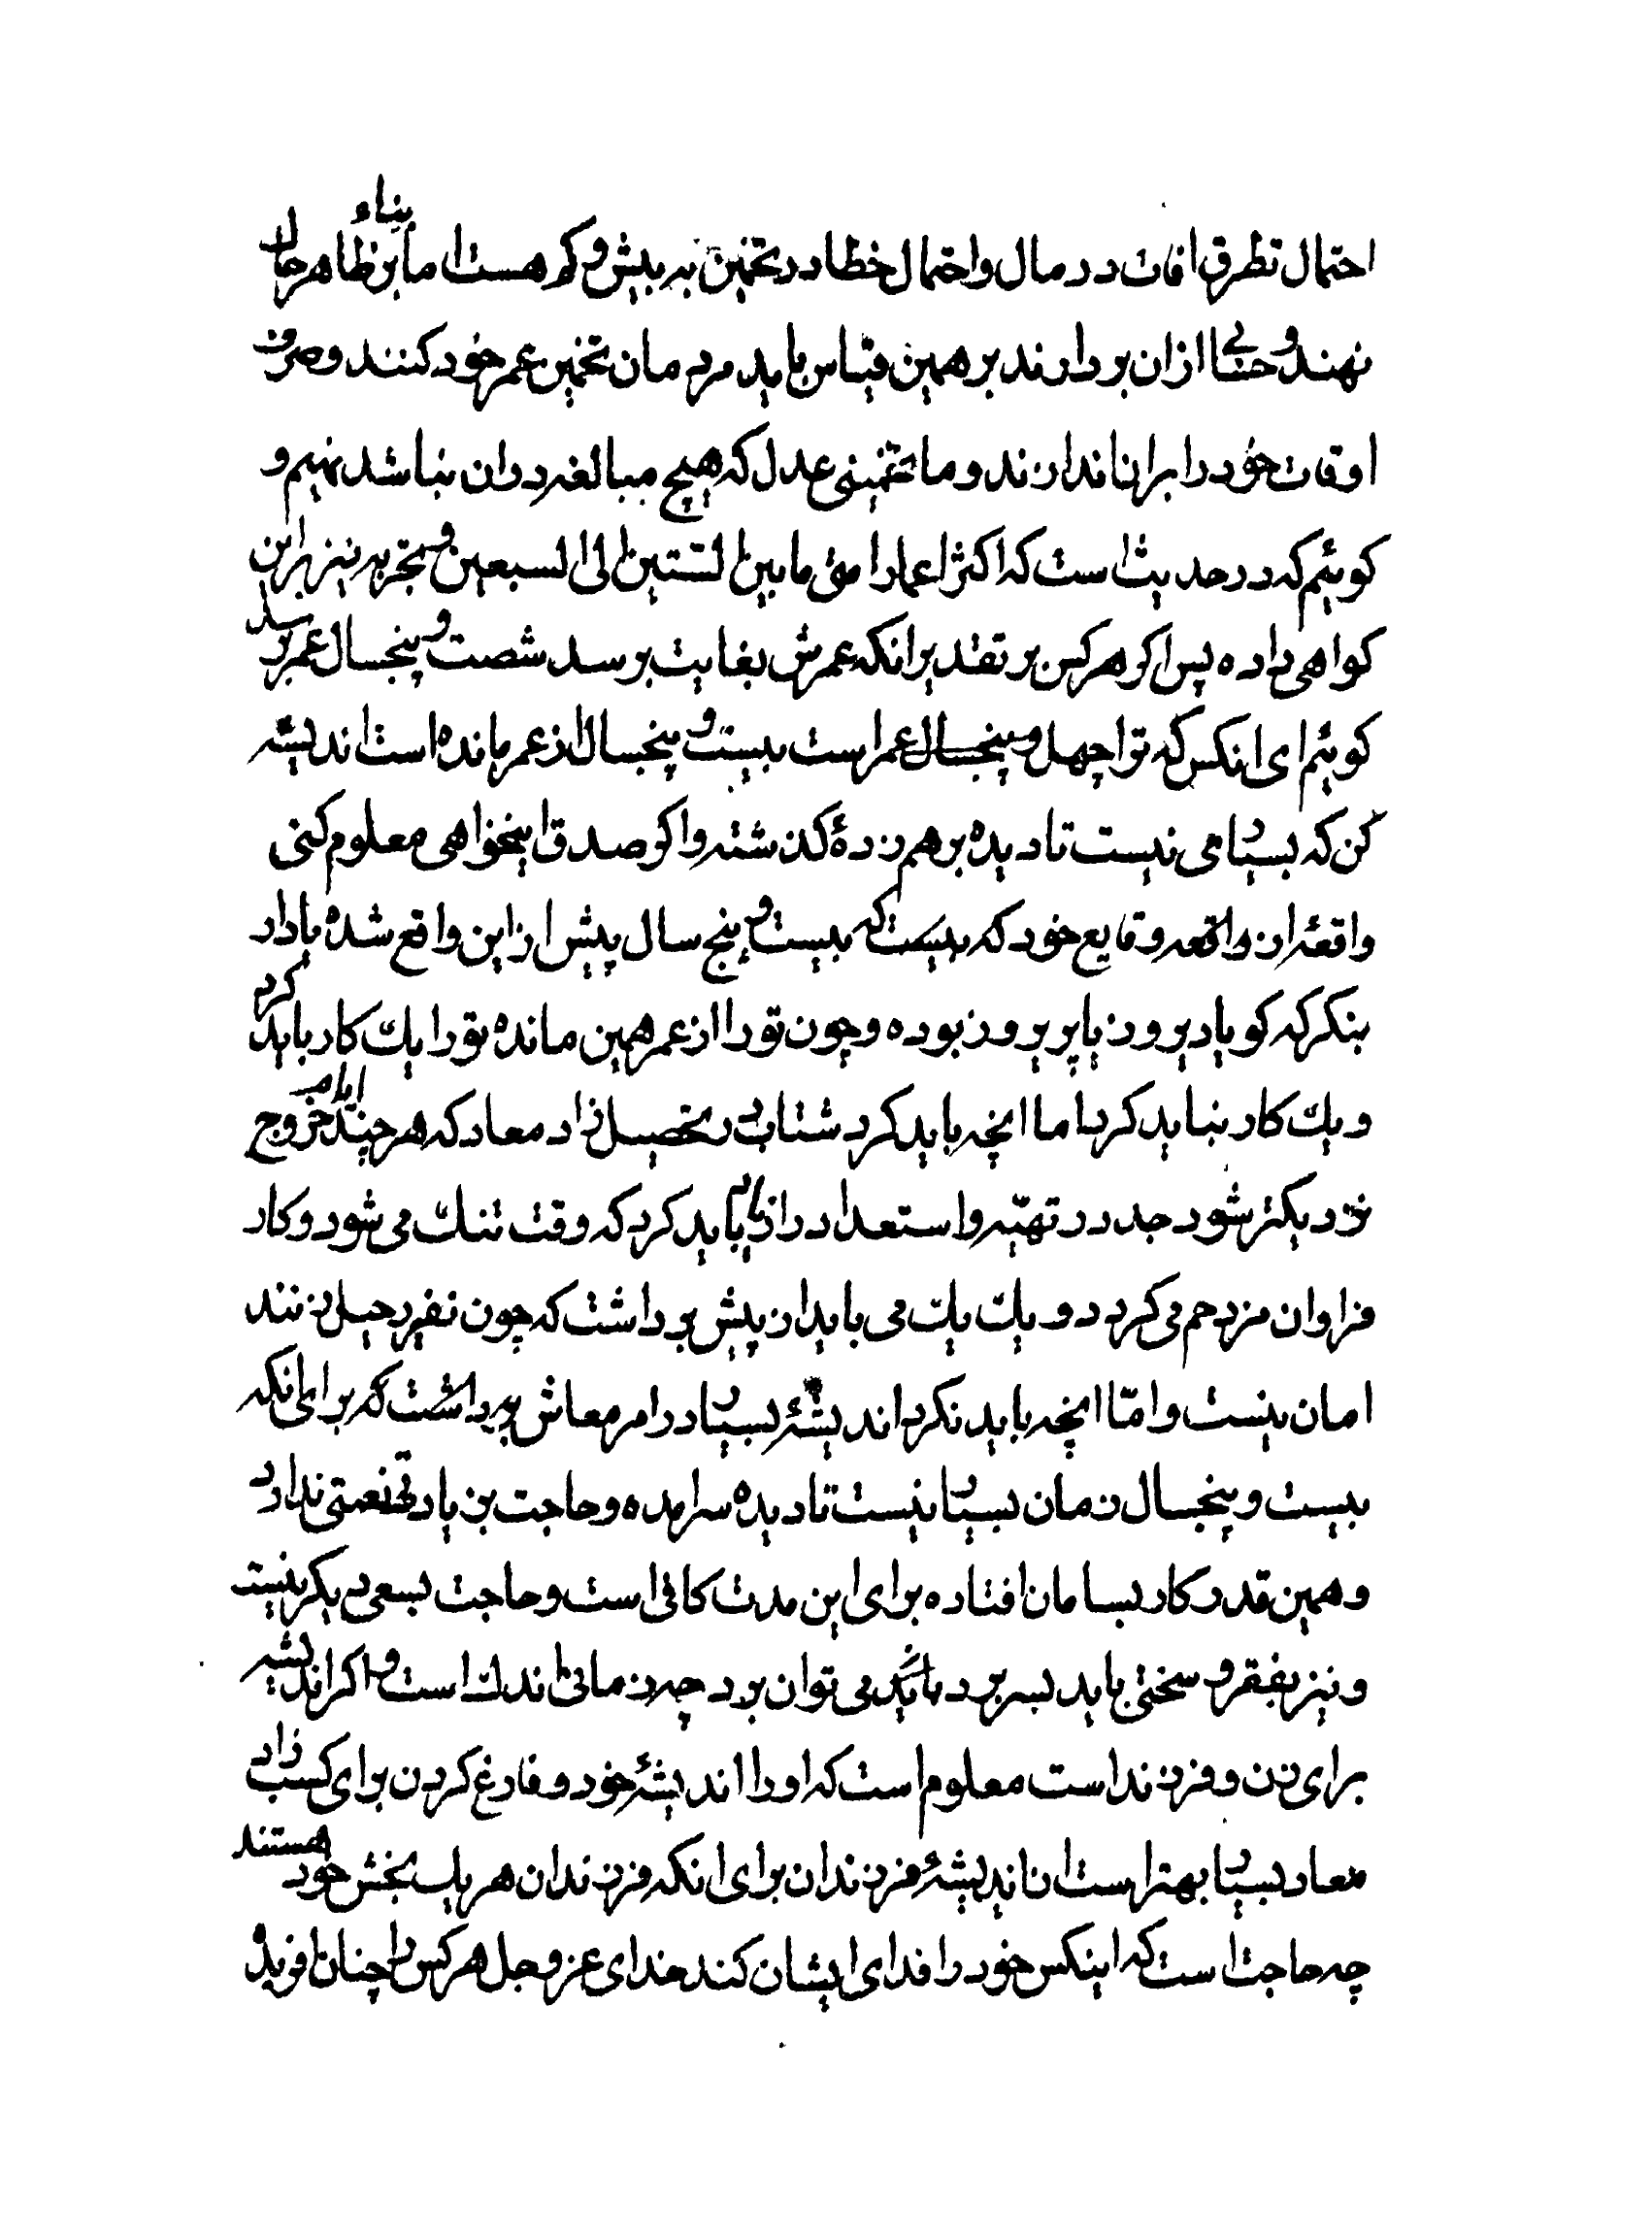 احتمال تطرق افات در مال و احتمال خطا در تخمین به بیش و کم هست اما بناء بر ظاهر حال
نهند و حسابی از ان بردارند بر همین قیاس باید مردمان تخمین عمر خود کنند و صرف
اوقات خود را بران اندازند و ما تخمینی عدل که هیچ مبالغه دران نباشد نهیم و
کوییم که در حدیث است که اکثر اعمار امتی ما بین الستین الی السبعین و تجربه نیز براین
کواهی داده پس اکر هر کس بر تقدیر انکه عمرش بغایت برسد شصت و پنجسال عمر برسد
کوییم ای انکس که ترا چهل سال عمر است بیست و پنجسال از عمر مانده است اندیشه
کن که بسیار می نیست تا دیده بر هم زدۀ کذشته و اکر صدق اینخواهی معلوم کنی
واقعۀ از وقایع خود که بیست و پنج سال پیش ازاین واقع شده یاد ار
بنکر که کویا دیروز یا پریروز بوده و چون تو را از عمر همین مانده تو را یك کار باید کرد
و یك کار نباید کرد اما انچه باید کرد شتاب در تحصیل زاد معاد که هر چند ایام خروج
نزدیکتر شود جد در تهیّه و استعداد را زیاد باید کرد که وقت تنك می شود و کار
فراوان مزدحم می کردد و یك یك می باید از پیش برداشت که چون نفیر رحیل زنند
امان نیست و امّا انچه باید نکرد اندیشۀ بسیار در امر معاش برای انکه
بیست و پنجسال زمان بسیار نیست تا دیده سرامده و حاجت بزیادتی نعمتی ندارد
و همین قدر کار بسامان افتاده برای این مدت کافی است و حاجت بسعی دیکر نیست
و نیز بفقر و سختی باید بسر برد می توان برد چه زمانی اندك است و اکر اندیشه
برای زن و فرزند است معلوم است که او را اندیشۀ خود و فارغ کردن برای کسب زاد
معاد بسیار بهتر است از اندیشۀ فرزندان برای انکه فرزندان هر یك بخش خود هستند
چه حاجت است که اینکس خود را فدای ایشان کند خدای عز و جل هر کس را چنان افریده